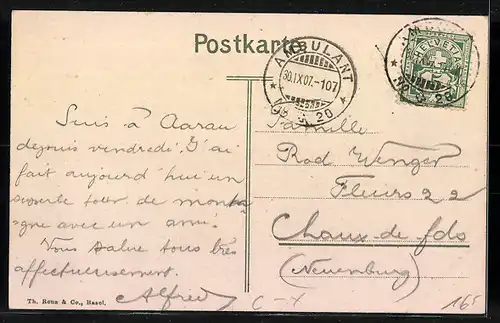 Postkarte
AMBULANT
30.IX.07.-107
No 3 20
HELVETIA
Suis à Aarau
depuis vendredi. J'ai
fait aujourd'hui un
superbe tour de monta-
gne avec un ami.
Vous salue tous très
affectueusement.
Alfred
Famille
Rod Wenger
Fleurs 22
Chaux-de-fds
(Neuenburg)
Th. Renz & Co., Basel.